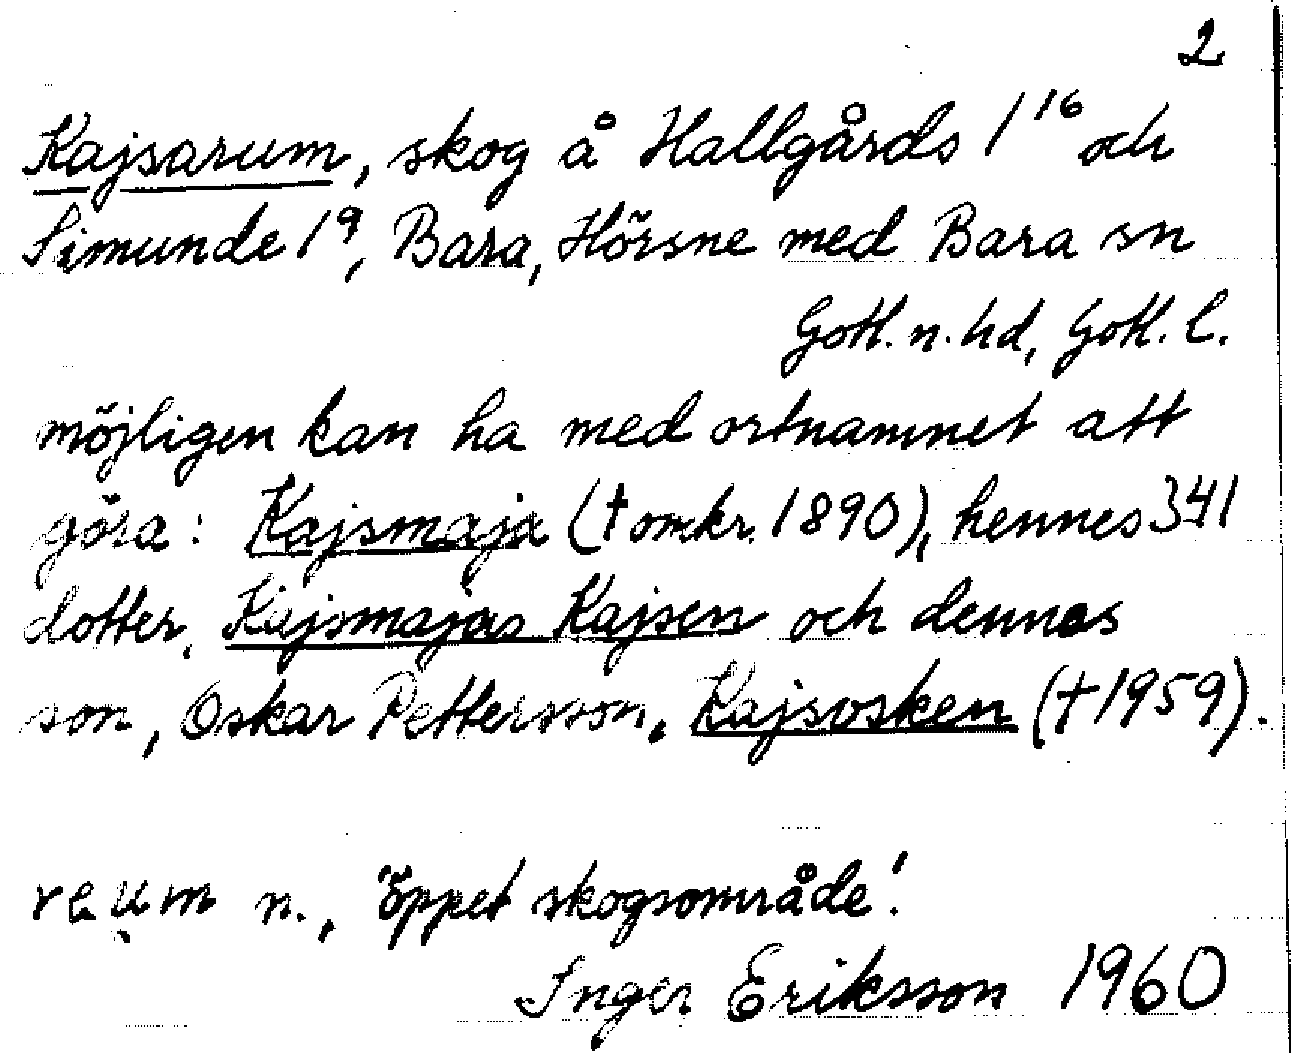 2
Kajsarum, skog å Hallgårds 1¹⁶ och
Simunde 1⁹, Bara, Hörsne med Bara sn
Gotl. n. hd, Gotl. l.
möjligen kan ha med ortnamnet att
göra: Kajsmaja († omkr. 1890), hennes 341
dotter, Kajsmajas Kajsen och dennas
son, Oskar Pettersson, Kajsosken († 1959).
reu̯m n., 'öppet skogsområde'.
Inger Eriksson 1960